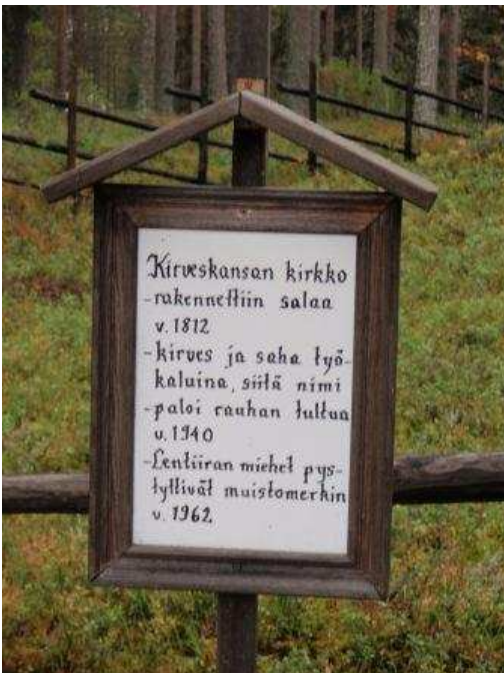 Kirveskansan kirkko
-rakennettiin salaa
v. 1812
-kirves ja saha työ-
kaluina, siitä nimi
-paloi rauhan tultua
v. 1940
-Lentiiran miehet pys-
tyttivät muistomerkin
v. 1962